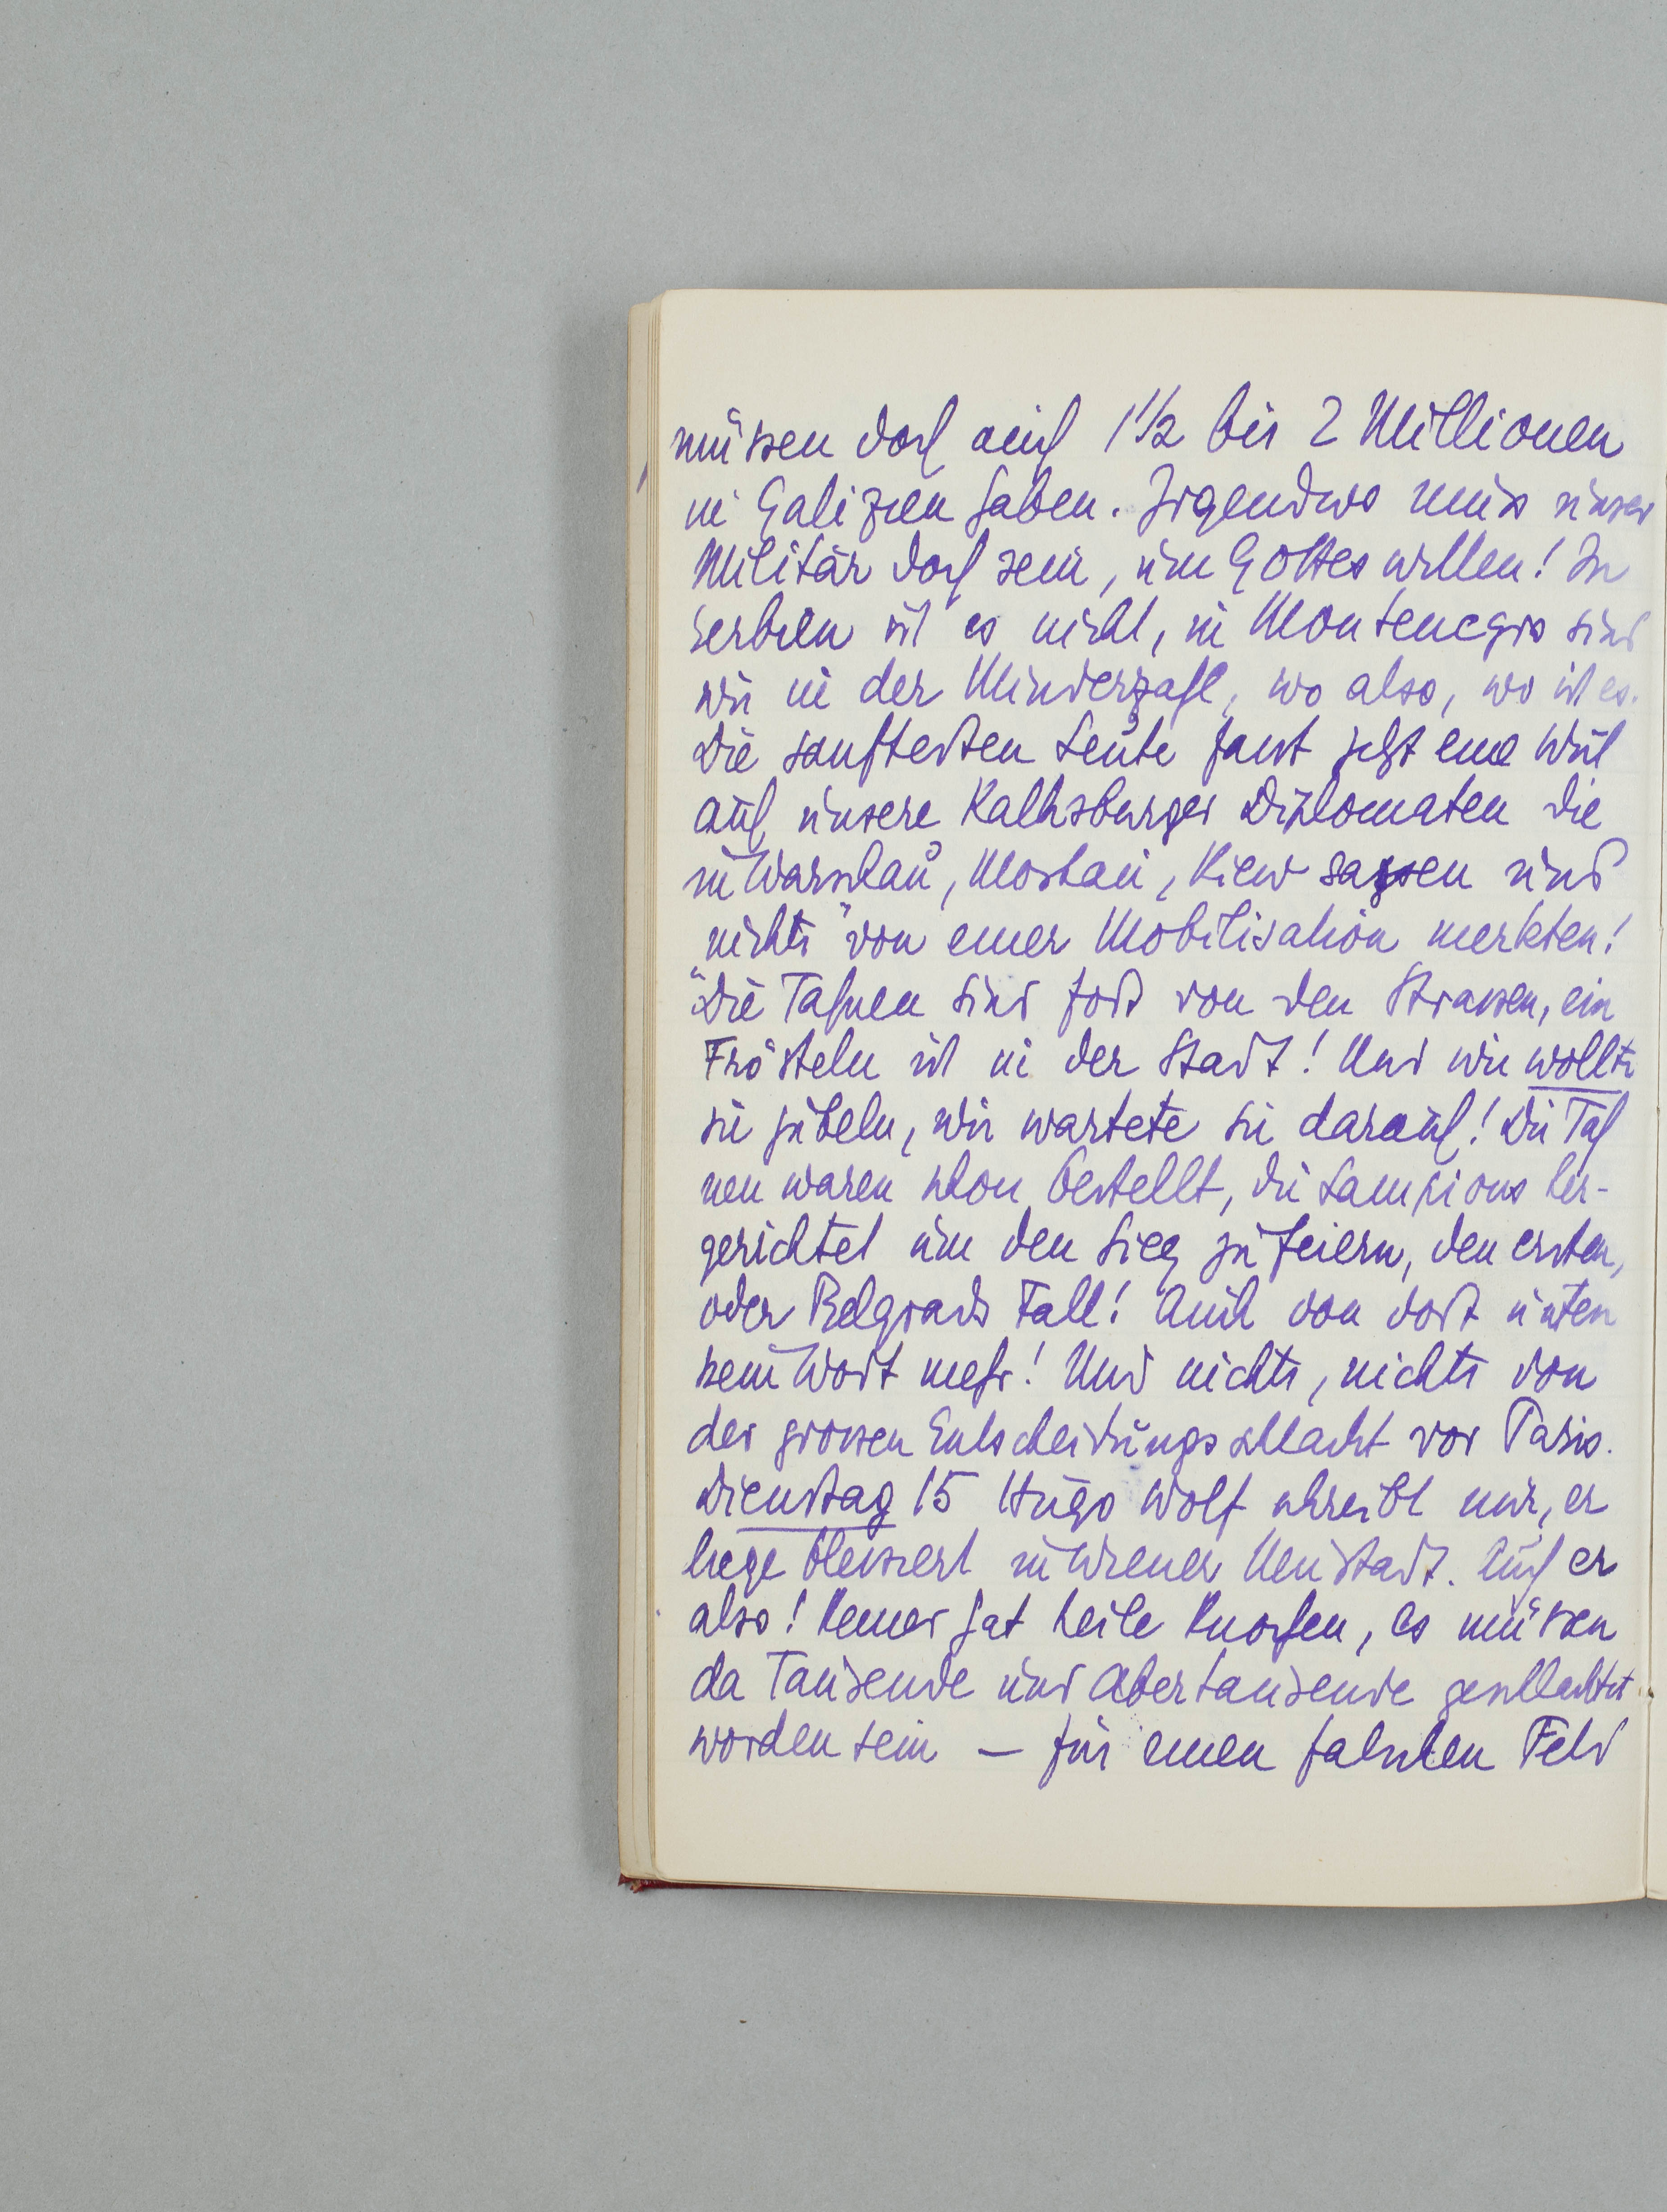 müssen doch auch 1½ bis 2 Millionen
in Galizien haben. Irgendwo muss unser
Militär doch sein, um Gottes willen! In
Serbien ist es nicht, in Montenegro sind
wir in der Minderzahl, wo also, wo ist es.
Die sanftesten Leute fasst jetzt eine Wut
auf unsere Kalksburger Diplomaten die
in Warschau, Moskau, Kiew sassen und
"nichts" von einer Mobilisation merkten!
Die Fahnen sind fort von den Strassen, ein
Frösteln ist in der Stadt! Und wie wollte
sie jubeln, wie wartete sie darauf! Die Fah
nen waren schon bestellt, die Lampions her-
gerichtet um den Sieg zu feiern, den ersten,
oder Belgrads Fall! Auch von dort unten
kein Wort mehr! Und nichts, nichts von
der grossen Entscheidungsschlacht vor Paris.
Dienstag 15 Hugo Wolf schreibt mir, er
liege blessiert in Wiener Neustadt. Auch er
also! Keiner hat heile Knochen, es müssen
da Tausende und Abertausende geschlachtet
worden sein — für einen falschen Feld